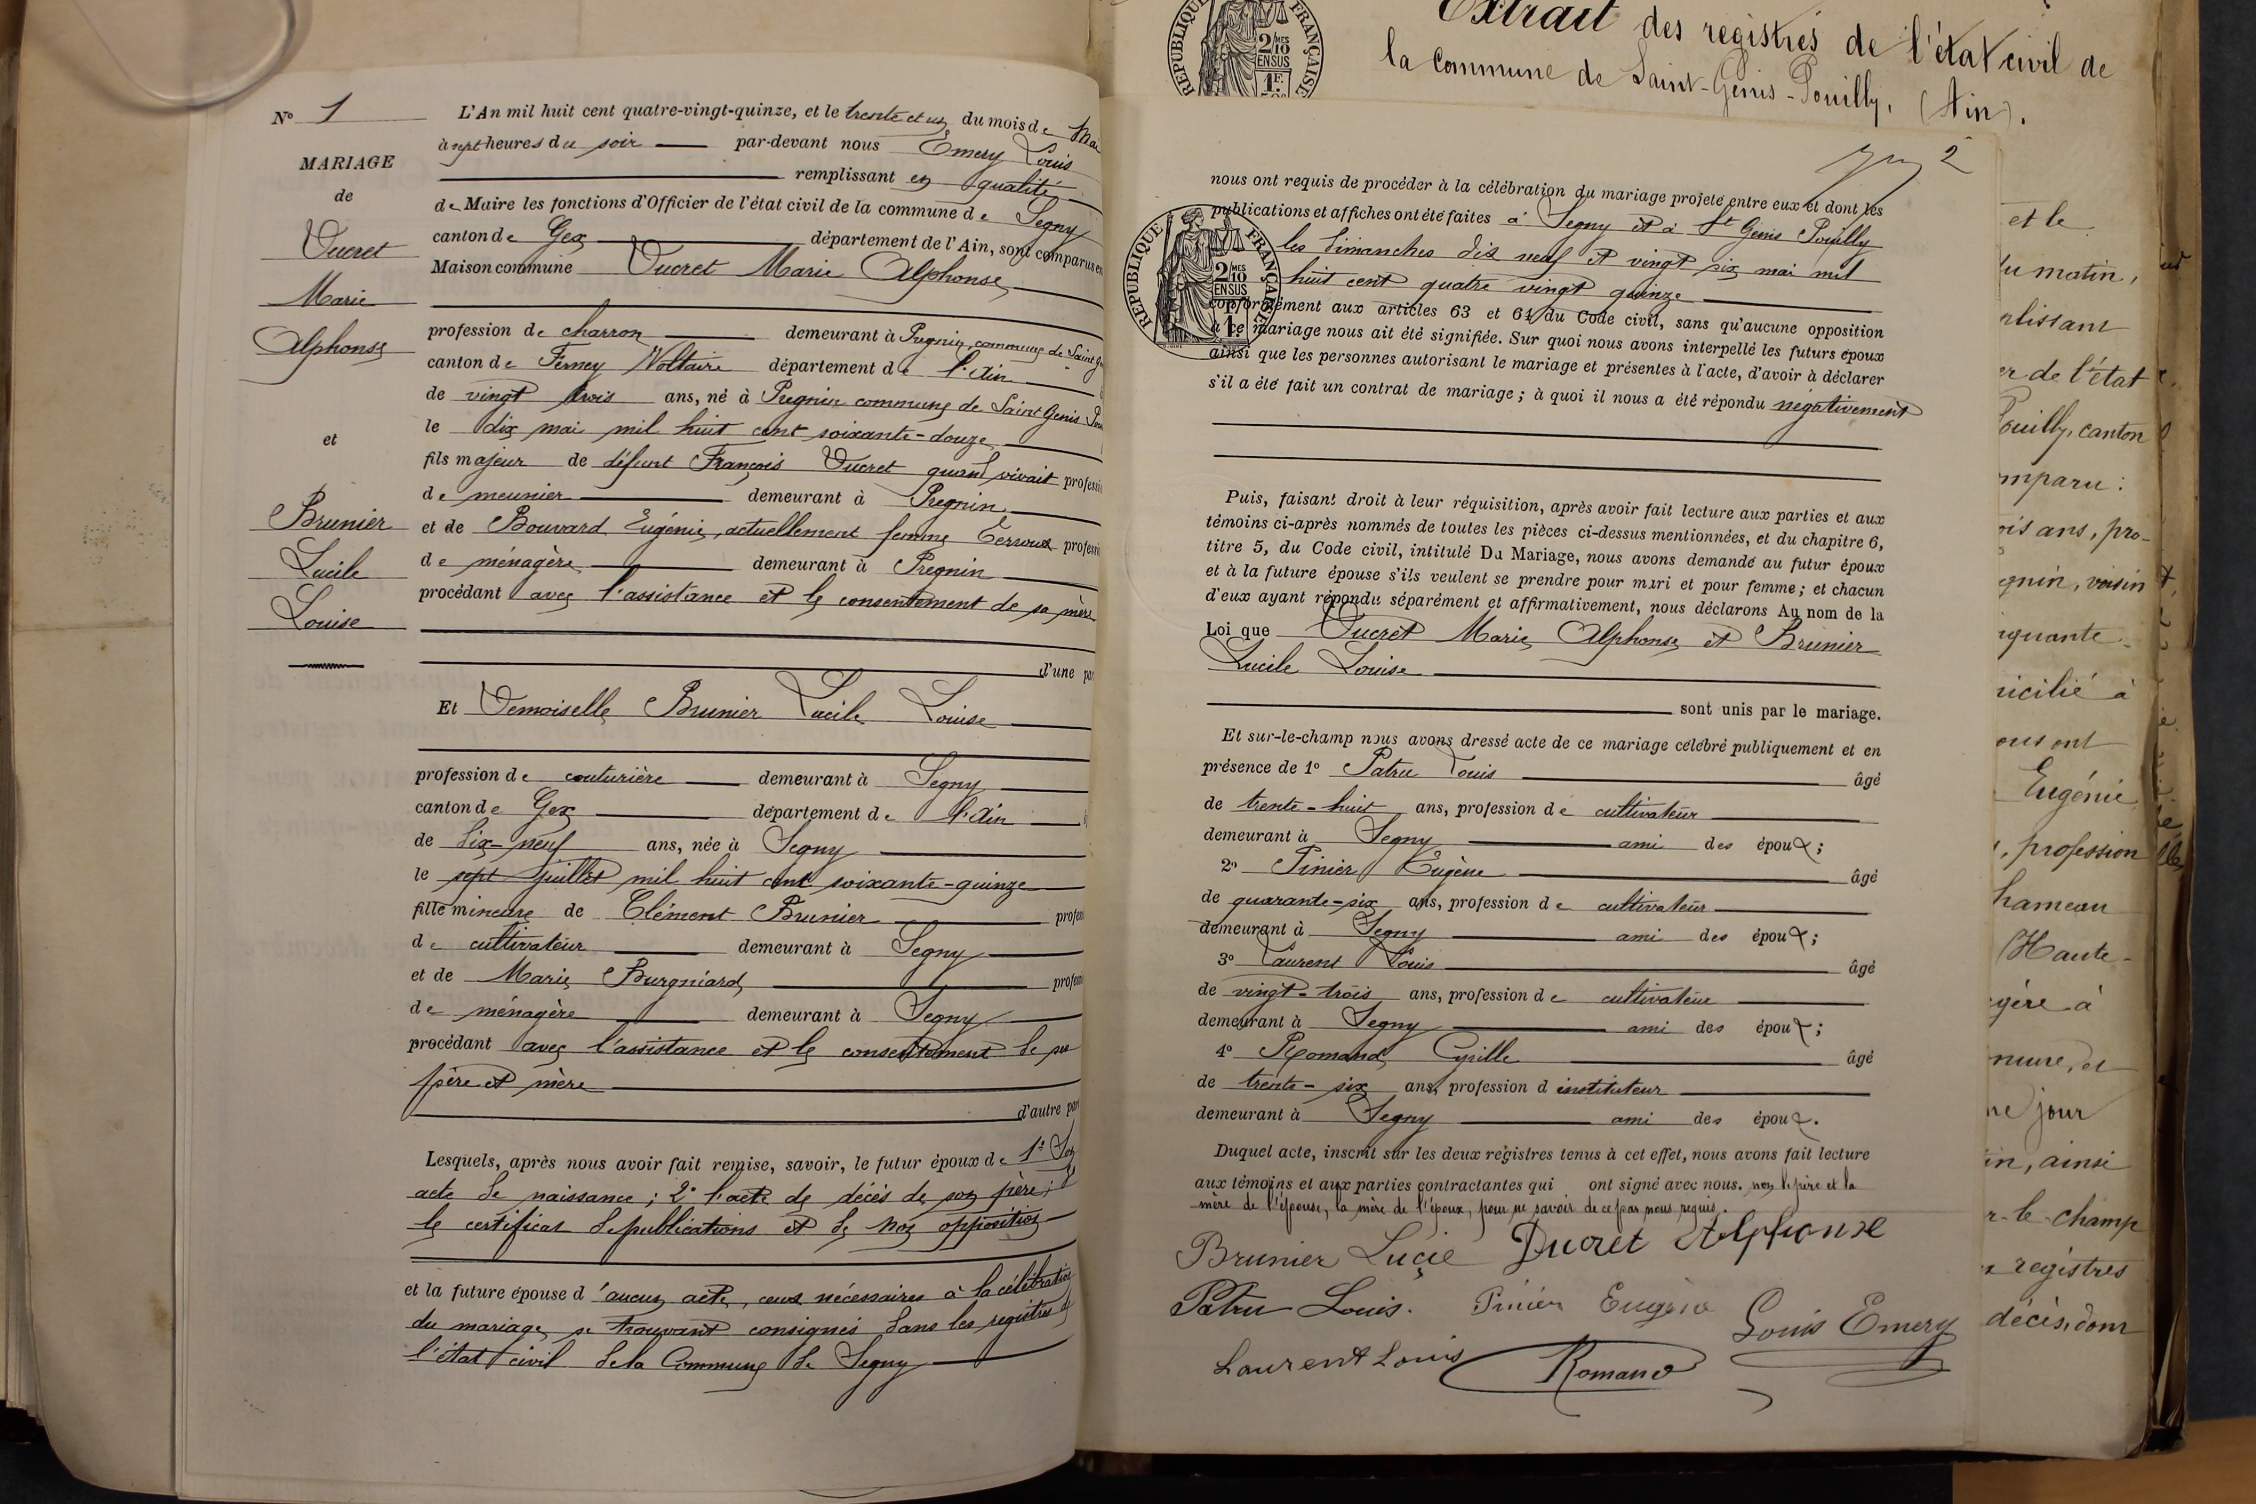 N° 1
MARIAGE
de
Ducret
Marie
Alphonse
et
Brunier
Lucile
Louise
L'An mil huit cent quatre-vingt-quinze, et le trente et un du mois de Mai
à sept heures du soir par-devant nous Emery Louis
remplissant en qualité
de Maire les fonctions d'Officier de l'état civil de la commune de Segny
canton de Gex département de l'Ain, sont comparus en
Maison commune Ducret Marie Alphonse
profession de charron demeurant à Pregnin, commune de Saint
canton de Ferney Voltaire département de l'Ain
de vingt trois ans, né à Pregnin commune de Saint Genis
le dix mai mil huit cent soixante-douze
fils majeur de défunt François Ducret quand vivait
de meunier demeurant à Pregnin
et de Bouvard Eugénie, actuellement femme Terroux
de ménagère demeurant à Pregnin
procédant avec l'assistance et le consentement de sa mère
d'une
Et Demoiselle Brunier Lucile Louise
profession de couturière demeurant à Segny
canton de Gex département de l'Ain
de dix-neuf ans, née à Segny
le sept juillet mil huit cent soixante-quinze
fille mineure de Clément Brunier
de cultivateur demeurant à Segny
et de Marie Burgniard
de ménagère demeurant à Segny
procédant avec l'assistance et le consentement de ses
père et mère
d'autre
Lesquels, après nous avoir fait remise, savoir, le futur époux de 1° Son
acte de naissance ; 2° l'acte de décès de son père ; 3°
le certificat de publications et de non opposition
et la future épouse d'aucun acte, ceux nécessaires à la célébration
du mariage se trouvant consignés dans les registres de
l'état civil de la Commune de Segny
Extrait des registres de l'état civil de
la commune de Saint-Genis-Pouilly, (Ain).
RÉPUBLIQUE FRANÇAISE
2/10 MES
EN SUS
1F.
2
nous ont requis de procéder à la célébration du mariage projeté entre eux et dont les
publications et affiches ont été faites à Segny et à St Genis Pouilly
les dimanches dix neuf et vingt six mai mil
huit cent quatre vingt quinze
conformément aux articles 63 et 64 du Code civil, sans qu'aucune opposition
à ce mariage nous ait été signifiée. Sur quoi nous avons interpellé les futurs époux
ainsi que les personnes autorisant le mariage et présentes à l'acte, d'avoir à déclarer
s'il a été fait un contrat de mariage ; à quoi il nous a été répondu négativement
RÉPUBLIQUE FRANÇAISE
2/10 MES
EN SUS
1F.
Puis, faisant droit à leur réquisition, après avoir fait lecture aux parties et aux
témoins ci-après nommés de toutes les pièces ci-dessus mentionnées, et du chapitre 6,
titre 5, du Code civil, intitulé Du Mariage, nous avons demandé au futur époux
et à la future épouse s'ils veulent se prendre pour mari et pour femme ; et chacun
d'eux ayant répondu séparément et affirmativement, nous déclarons Au nom de la
Loi que Ducret Marie Alphonse et Brunier
Lucile Louise
sont unis par le mariage.
Et sur-le-champ nous avons dressé acte de ce mariage célébré publiquement et en
présence de 1° Patru Louis âgé
de trente-huit ans, profession de cultivateur
demeurant à Segny ami des époux ;
2° Pinier Eugène âgé
de quarante-six ans, profession de cultivateur
demeurant à Segny ami des époux ;
3° Laurent Louis âgé
de vingt-trois ans, profession de cultivateur
demeurant à Segny ami des époux ;
4° Romand Cyrille âgé
de trente-six ans, profession d instituteur
demeurant à Segny ami des époux.
Duquel acte, inscrit sur les deux registres tenus à cet effet, nous avons fait lecture
aux témoins et aux parties contractantes qui ont signé avec nous. non le père et la
mère de l'épouse, la mère de l'époux, pour ne savoir de ce par nous requis.
Brunier Lucie Ducret Alphonse
Patru Louis. Pinier Eugène Louis Emery
Laurent Louis Romand
et le
du matin,
er de l'état
Pouilly, canton
ois ans, pro-
voisin
icilié à
Eugénie
profession
hameau
Haute-
jour
ainsi
r-le-champ
registres
décès, dont